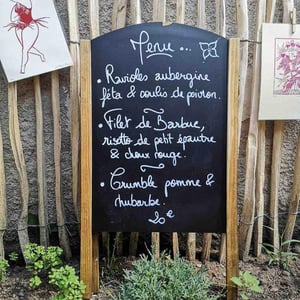 Menu ...
• Ravioles aubergine
féta & coulis de poivron.
• Filet de Barbue,
risotto de petit épautre
& choux rouge.
• Crumble pomme &
rhubarbe.
20€